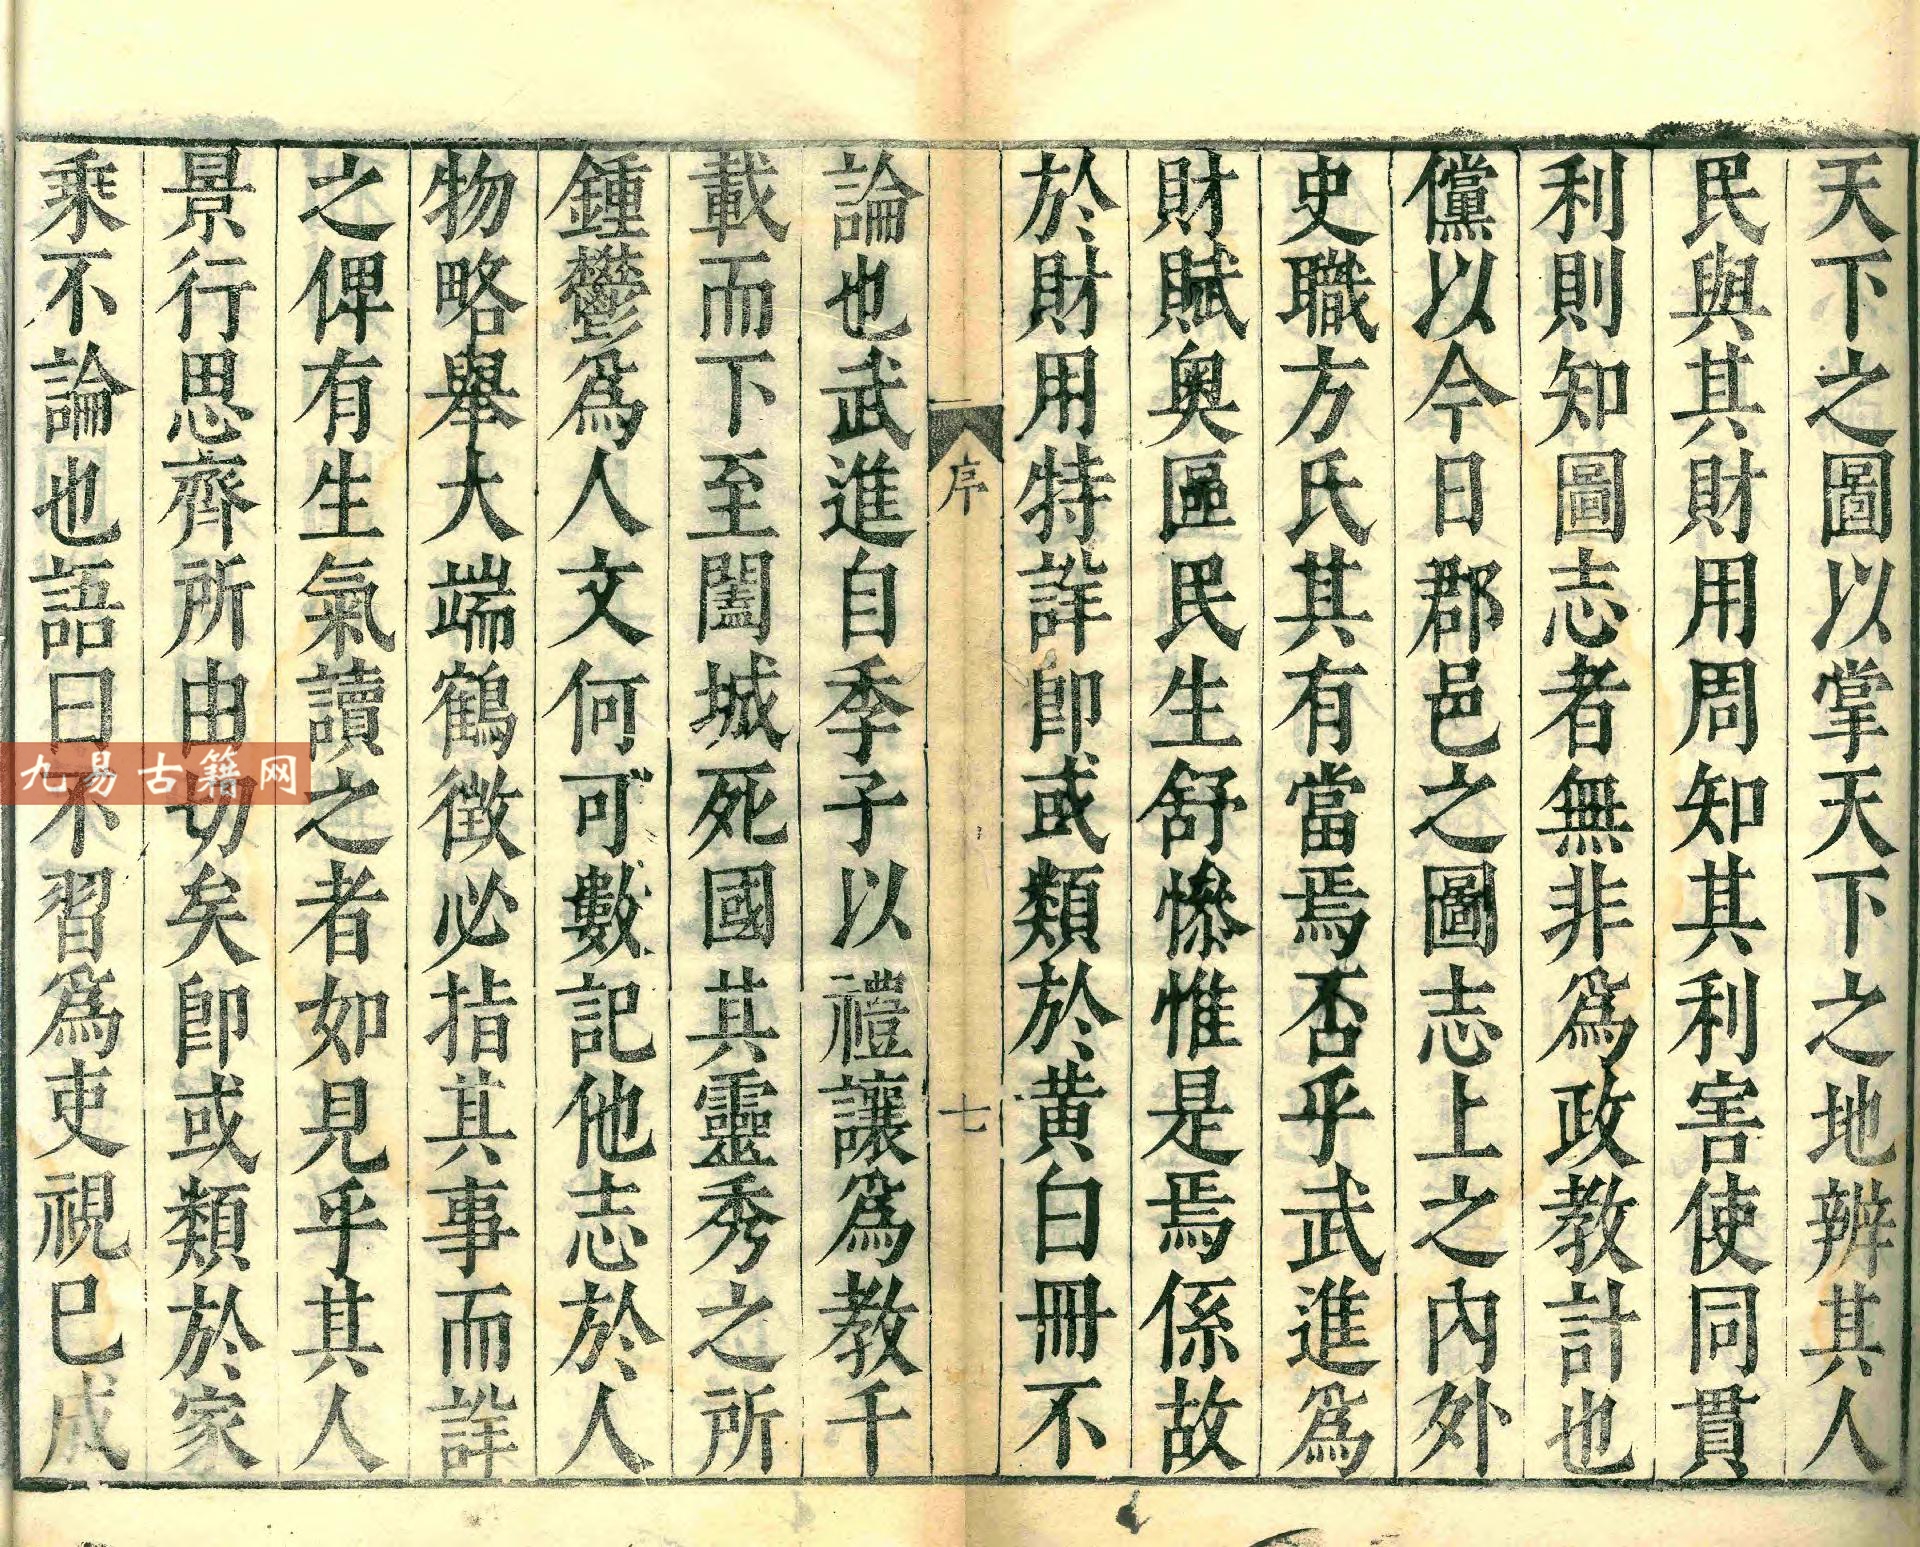 天下之圖以掌天下之地辨其人
民與其財用周知其利害使同貫
利則知圖志者無非爲政教計也
儻以今日郡邑之圖志上之內外
史職方氏其有當焉否乎武進爲
財賦奥區民生舒慘惟是焉係故
於財用特詳卽或類於黄白冊不
序
七
論也武進自季子以禮讓爲教千
載而下至闔城死國其靈秀之所
鍾鬱爲人文何可數記他志於人
物略舉大端鶴徵必指其事而詳
之俾有生氣讀之者如見乎其人
景行思齊所由切矣卽或類於家
乘不論也語曰不習爲吏視已成
九易古籍网